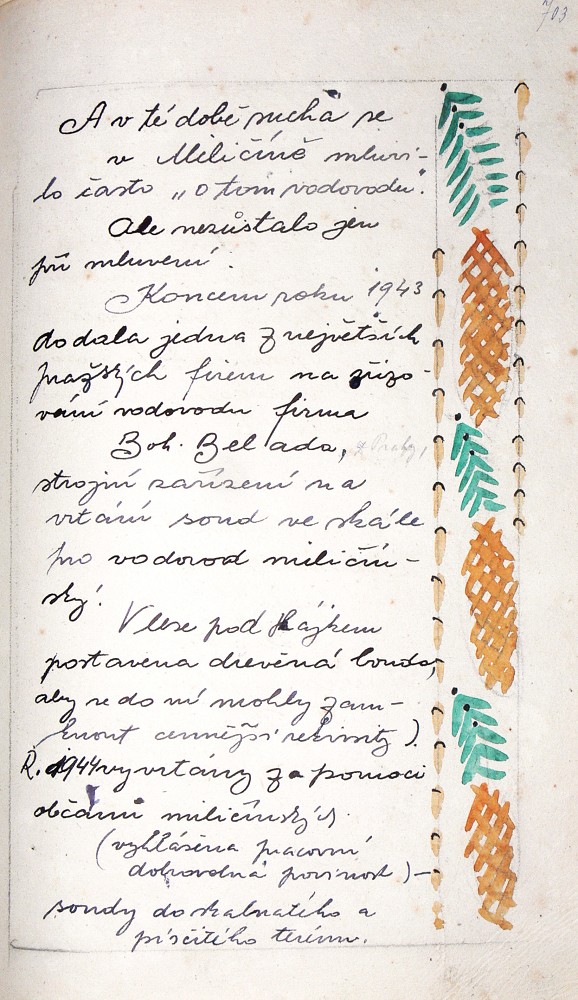 703
A v té době sucha se
v Miličíně mluvi-
lo často „o tom vodovodu".
Ale nezůstalo jen
při mluvení.
Koncem roku 1943
dodala jedna z největších
pražských firem na zřizo-
vání vodovodu firma
Boh. Belada, z Prahy,
strojní zařízení na
vrtání sond ve skále
pro vodovod miličín-
ský.
V lese pod Hájkem
postavena dřevěná bouda,
aby se do ní mohly zam-
knout cennější rekvisity).
R. 1944 vyvrtány za pomoci
občanů miličínských
(vyhlášena pracovní
dobrovolná povinnost)-
sondy do skalnatého a
písčitého terénu.